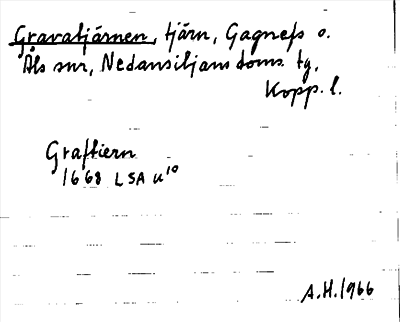 Gravatjärnen, tjärn, Gagnefs o.
Åls snr, Nedansiljans doms. tg,
Kopp. l.
Graftiern
1668 LSA u¹⁰
A.H. 1966